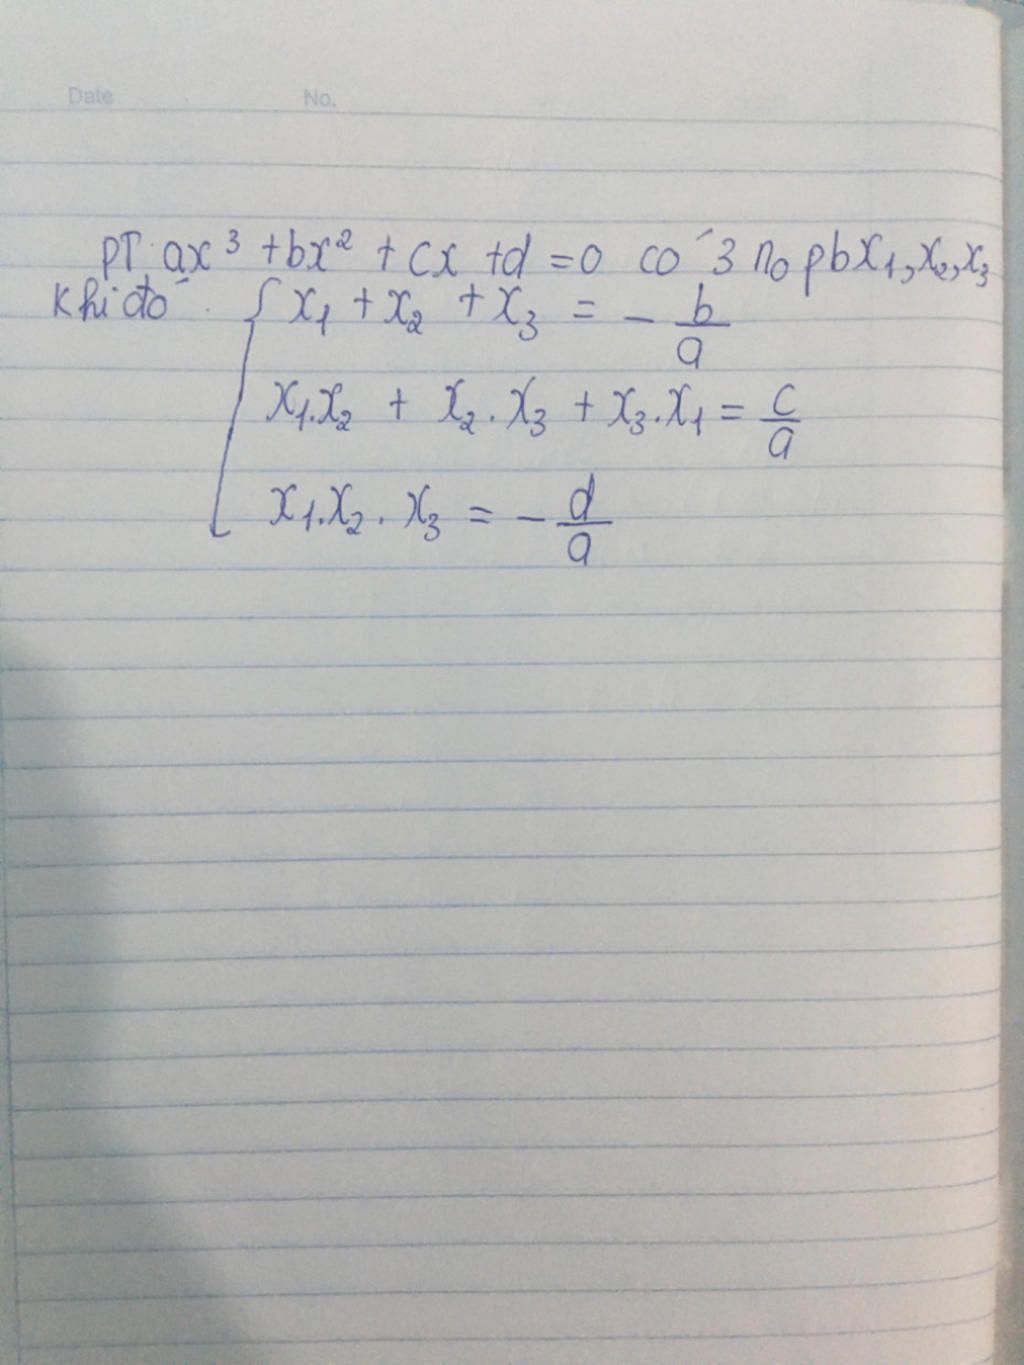 Date No.
PT ax³ + bx² + cx + d = 0 có 3 no pb x₁, x₂, x₃
Khi đó { x₁ + x₂ + x₃ = - b/a
x₁.x₂ + x₂.x₃ + x₃.x₁ = c/a
x₁.x₂.x₃ = - d/a